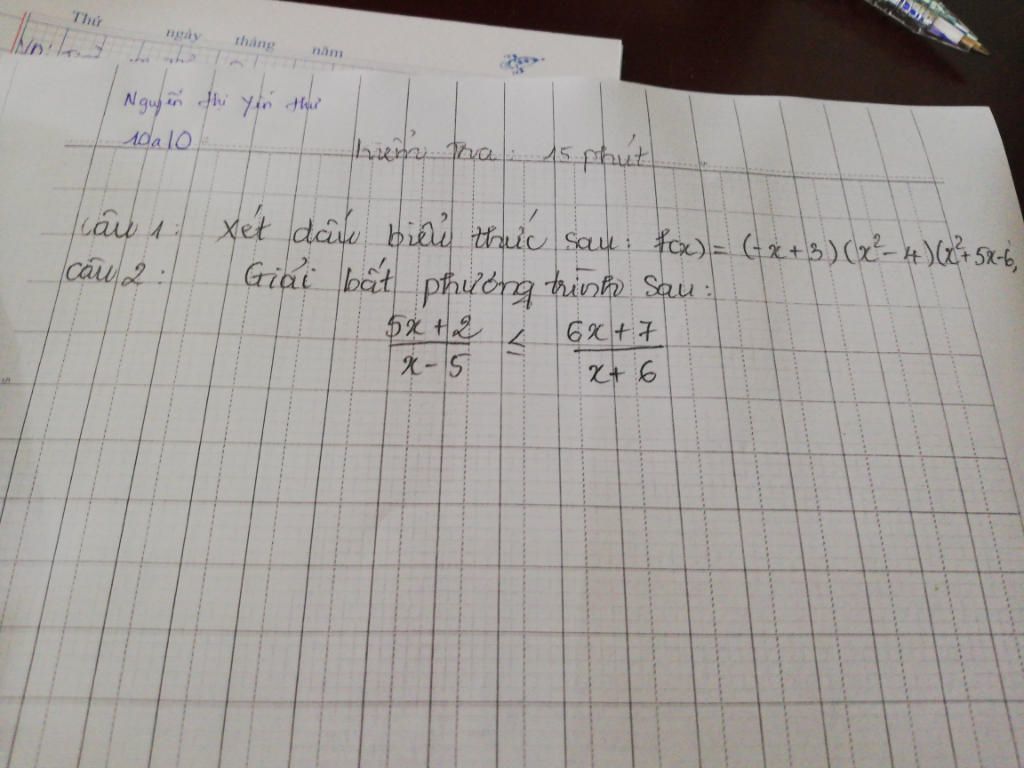 Thứ
ngày tháng năm
Nguyễn thị Yến thư
10a10
kiểm tra: 15 phút
Câu 1: Xét dấu biểu thức sau: f(x) = (-x+3)(x²-4)(x²+5x-6)
câu 2: Giải bất phương trình sau:
5x+2 ≤ 6x+7
x-5 x+6